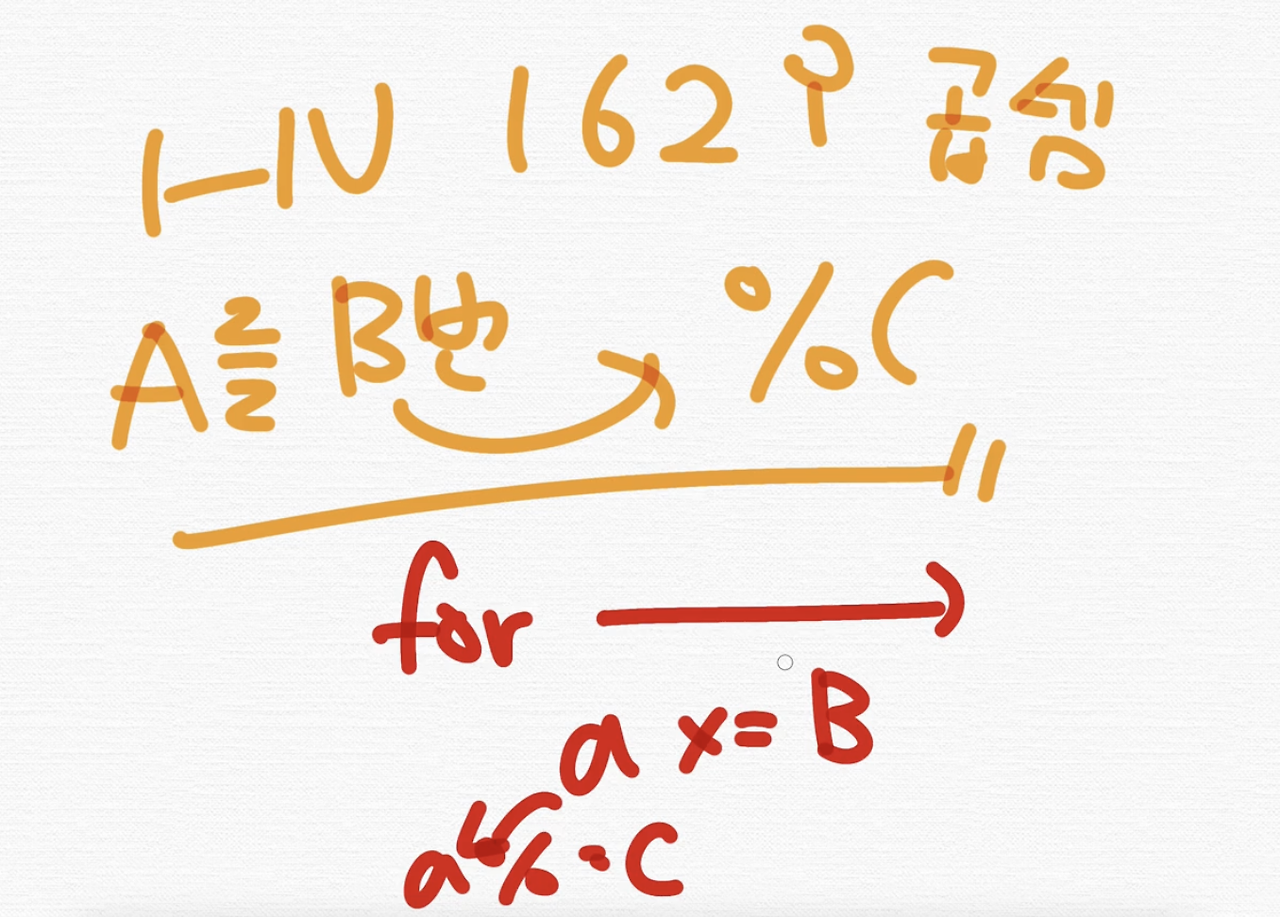 1-IV 1629 곱셈
A를 B번 → %C
for →
a x= B
a %= C